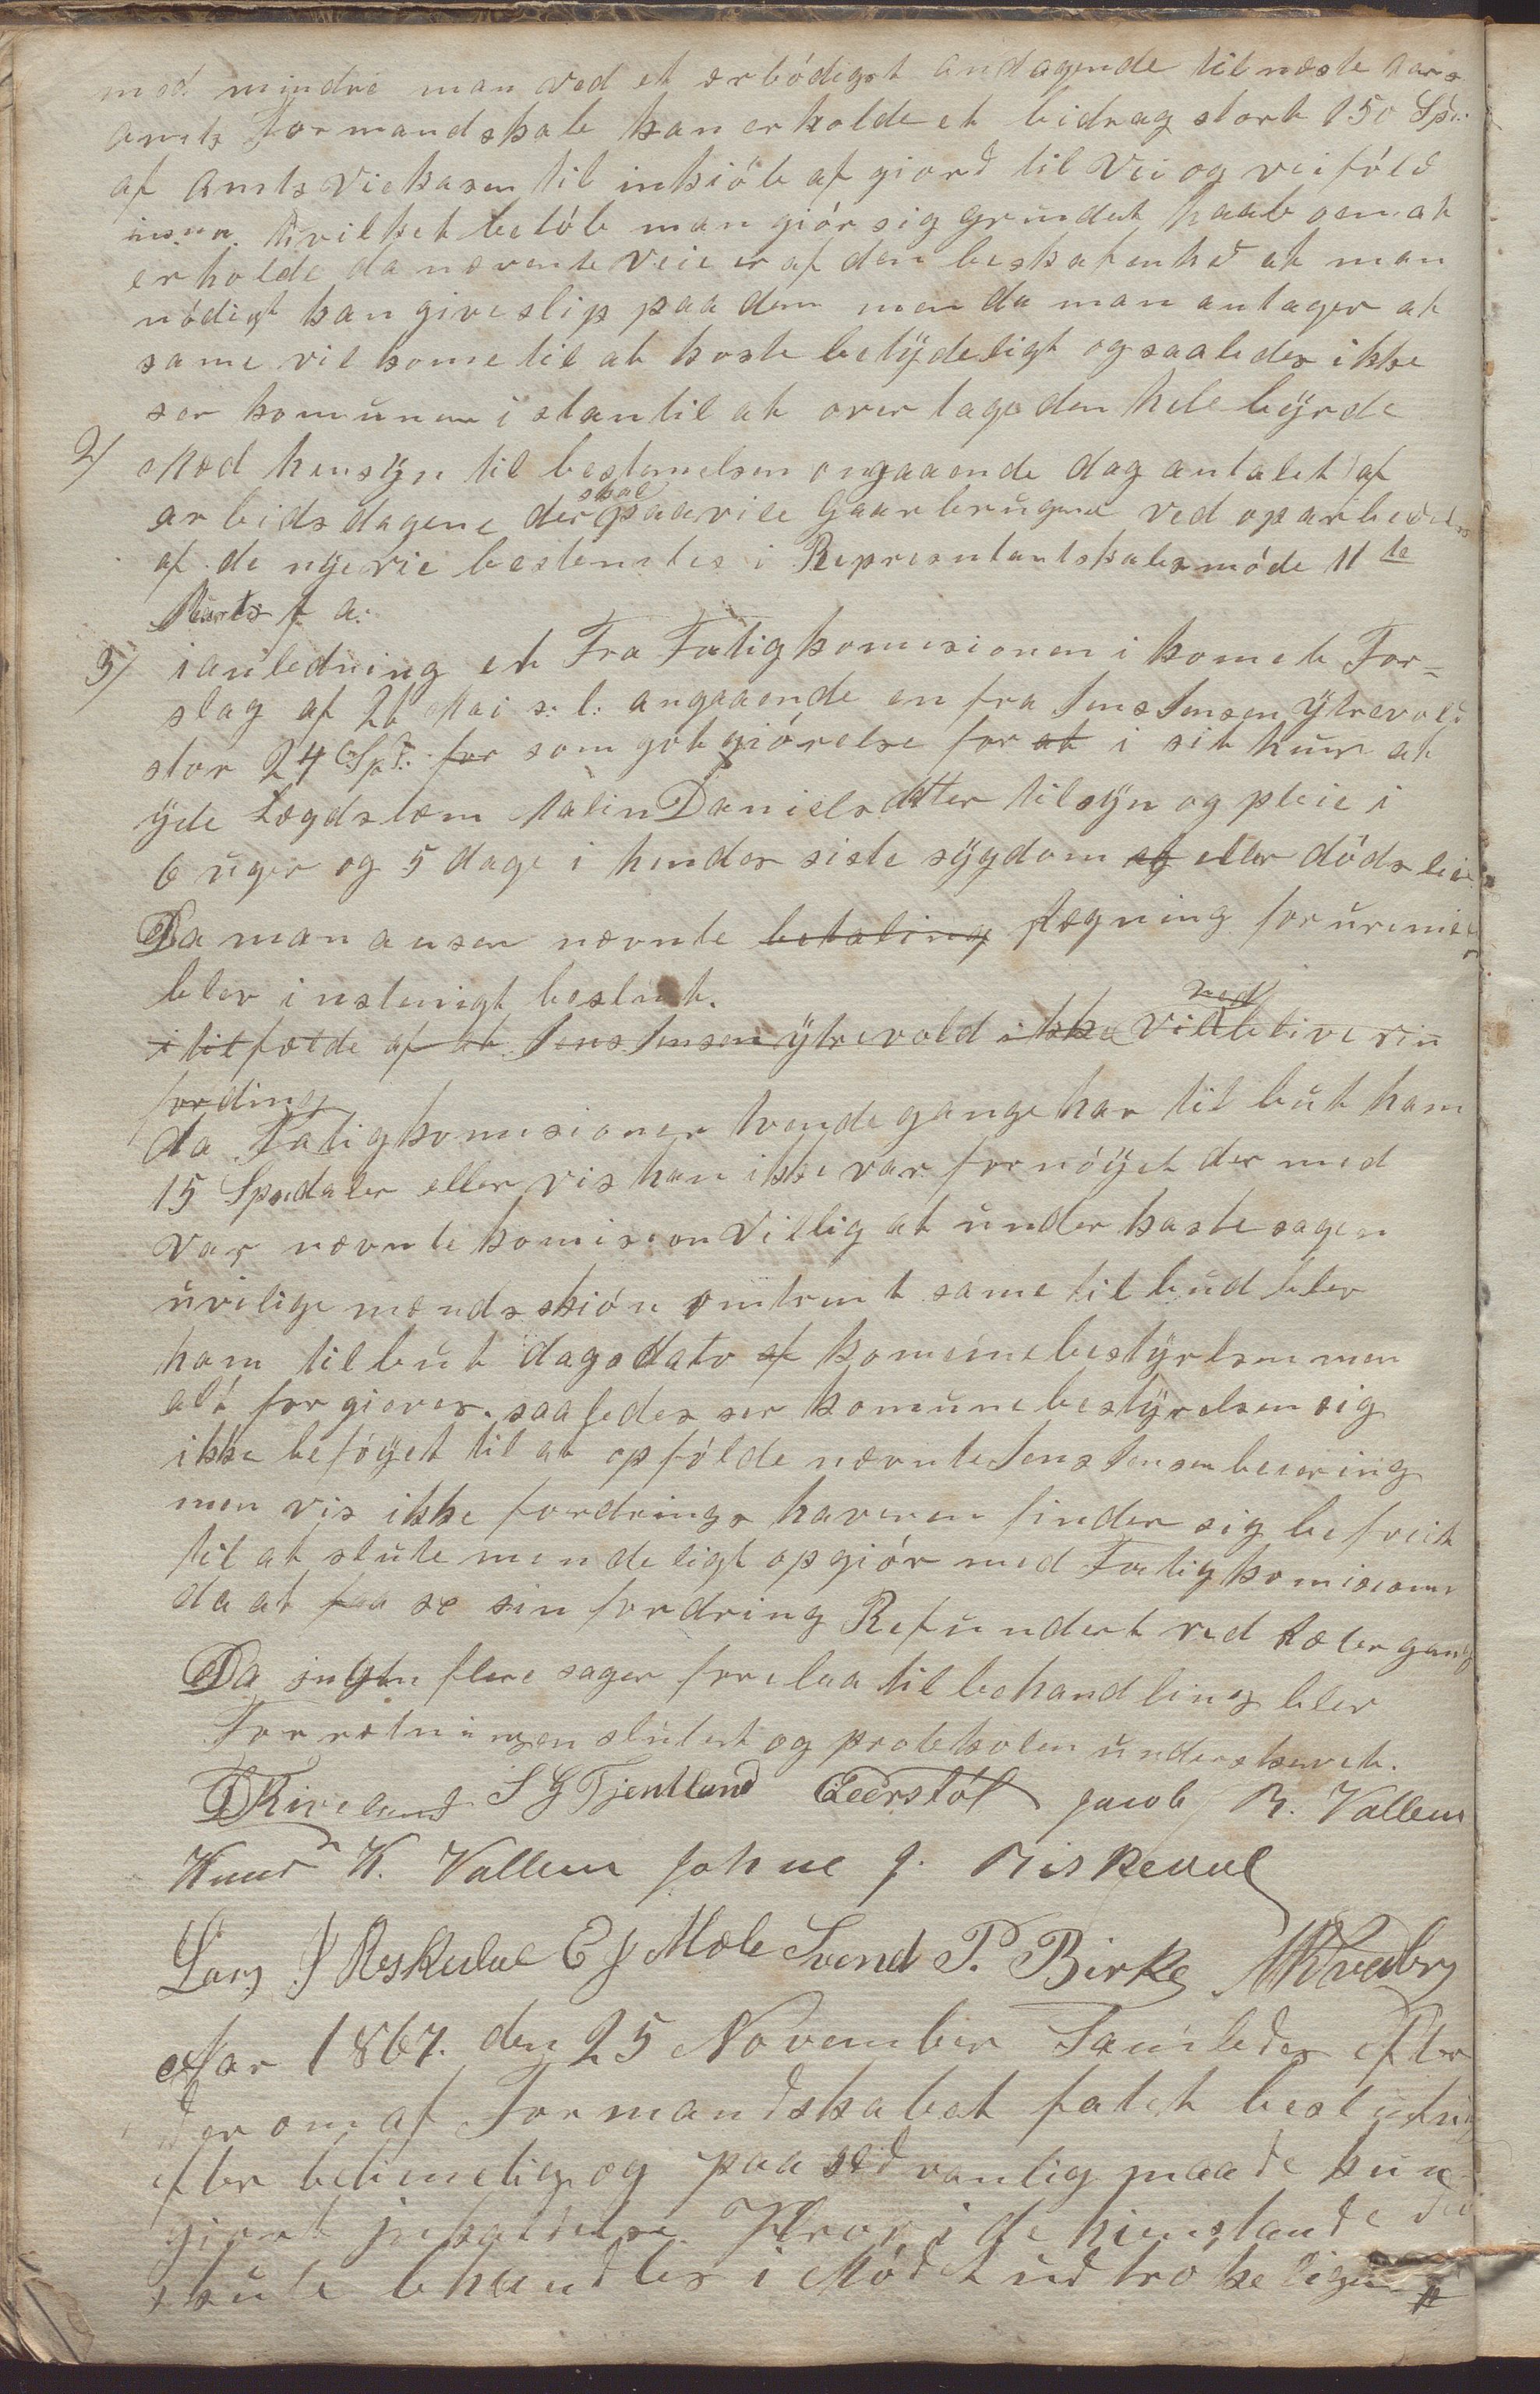 med mindre man ved et ærbödigst andagende til næste aars
amts Formandskab kan erholde et bidrag stort 150 Spd.
af amts Viekasen til inkiöb af giord til Vei og veiföld
hvilket belöb man giör sig grundet haab om at
erholde da nævente veie er af den beskafenhed at man
nödigt kan give slip paa dem men da man antager at
same vil kome til at koste betÿdeligt og saaledes ikke
ser komunen i stan til at over tage den hele bÿrde
2/ Med hensÿn til bestemelsen angaaende dag antalet af
arbeidsdagene der skal paavile gaarbrugene ved oparbeidels
af de nÿe vie bestemtes i Represntantskabsmöde 11te
Marts f. a.
3/ i anledning et Fra Fatigkomisionen i komet For-
slag af 26 Mai s. l. angaaende en fra Jens Jensen ÿtrevold
stor 24 Spd. for som gotgiörelse for at i sit huus at
ÿde Lægdslæm Malin Danielsdatter tilsÿn og pleie i
6 uger og 5 dage i hendes siste sÿgdom og eller dödsleie
Da man anser nævnte betaling for urimelig
blev instemigt beslut.
i tilfælde af at Jens Jensen ÿtrevold ikke vil ned blive sin
fording
da Fatigkomisionen tvende gange har til but ham
15 Spedaler eller vis han ikke var fornöÿet der med
var nævnte komision villig at under kaste sagen
uvilige mænds skiön omtrent same tilbud blev
ham tilbut dags dato af komunebestÿrelsen men
alt forgieves. saaledes ser komunebestÿrelsen sig
ikke beföÿet til at opfölde nævnte Jens Jensen beiering
men vis ikke fordrings haveren finder sig befoiet
til at slute mindeligt opgiör med Fatigkomisionen
da at faa se sin fordring Refundert ved
Da ingen flere sager forelaa til behandling blev
Forretningen slutet og protokolen underskrevet.
S G Tjentland Jacob R. Vallem
Knud K. Vallem Johne J. Riskedal
Lars J Reskedal E J Mæle Svend P. Birke
Aar 1867. den 25 November Samledes efter
der om af Formandskabet fatet beslutning
efter betimelig og paa sedvanlig maade kun-
giort inkaldelse Hvor i de hienstande der
skule behandles i Mödet udtrökeligen